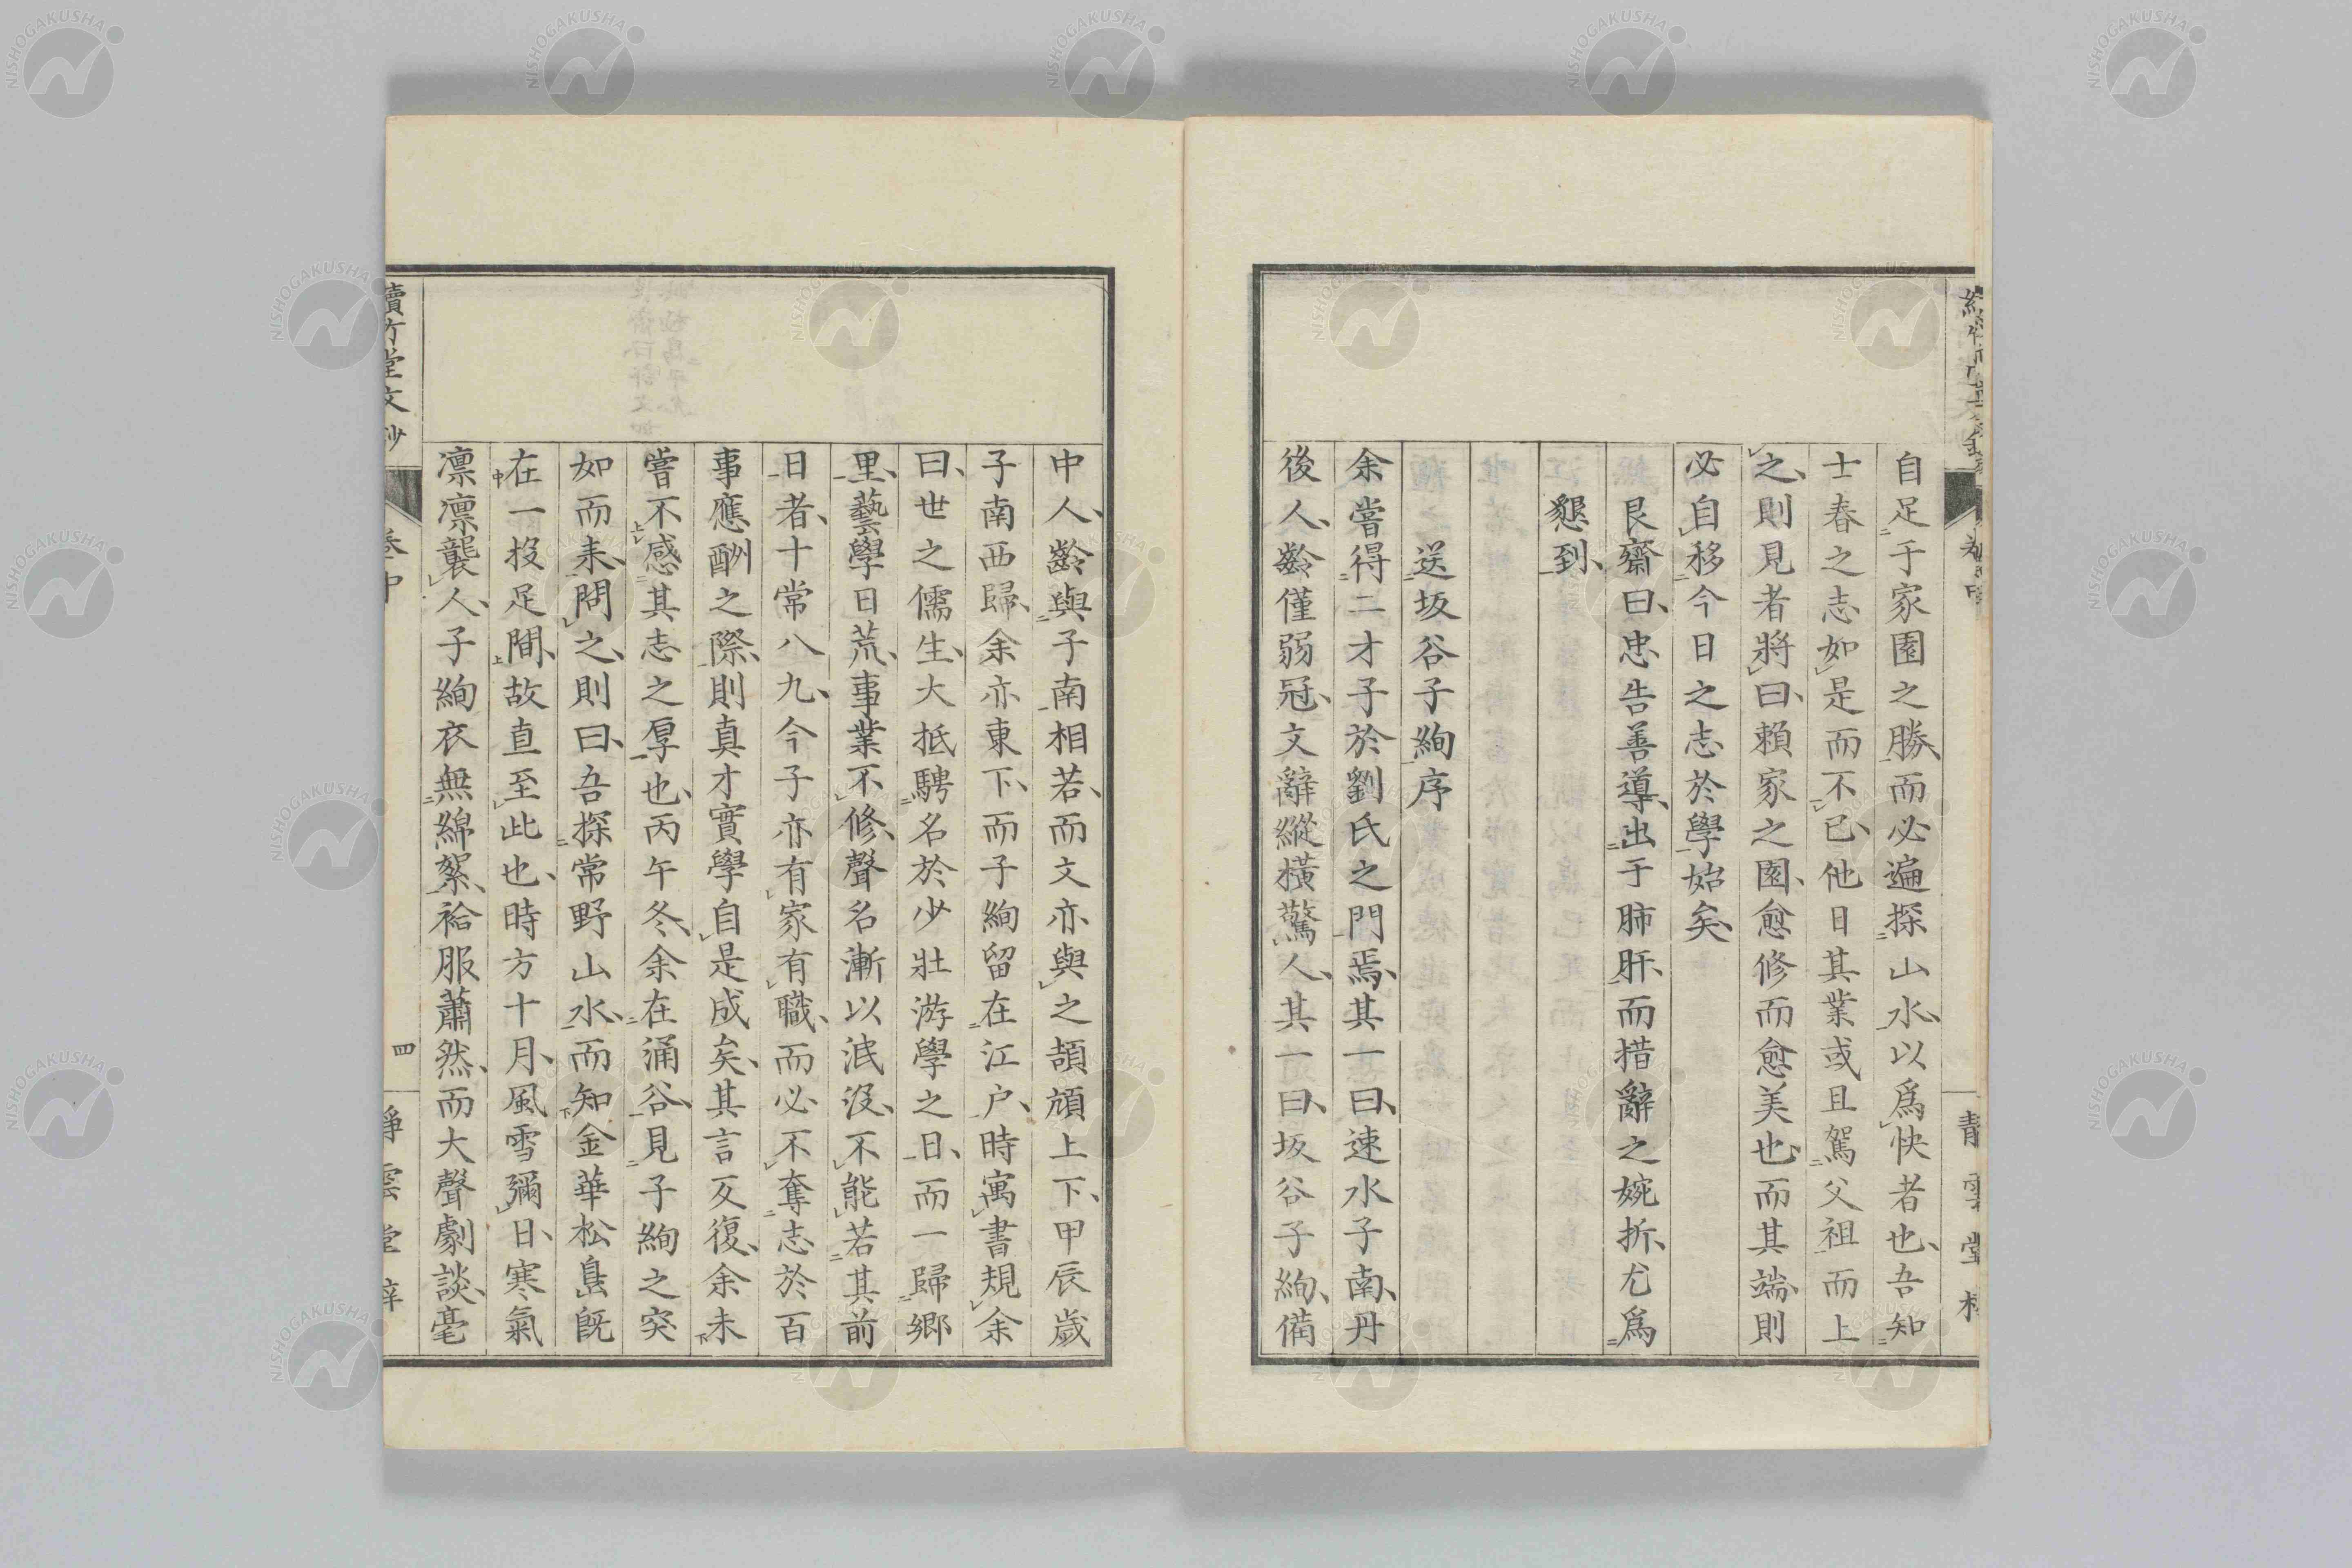 自足于家園之勝、而必遍探山水、以爲快者也、吾知
士春之志如是而不已、他日其業或且駕父祖而上
之、則見者將曰、賴家之園、愈修而愈美也、而其端、則
必自移今日之志於學始矣、
艮齋曰、忠告善導、出于肺肝、而措辭之婉折、尤爲
懇到、
送坂谷子絢序
余嘗得二才子於劉氏之門焉、其一曰、速水子南、丹
後人、齡僅弱冠、文辭縱橫驚人、其一曰、坂谷子絢、備
中人、齡與子南相若、而文亦與之頡頏上下、甲辰歲
子南西歸、余亦東下、而子絢留在江户、時寓書規余
曰、世之儒生、大抵騁名於少壯游學之日、而一歸鄉
里、藝學日荒、事業不修、聲名漸以泯沒、不能若其前
日者、十常八九、今子亦有家有職、而必不奪志於百
事應酬之際、則真才實學自是成矣、其言反復、余未
嘗不感其志之厚也、丙午冬、余在涌谷、見子絢之突
如而来、問之、則曰、吾探常野山水、而知金華松島既
在一投足間、故直至此也、時方十月、風雪彌日、寒氣
凛凛襲人、子絢衣無綿絮、袷服蕭然、而大聲劇談、毫
續竹堂文鈔
卷中
四